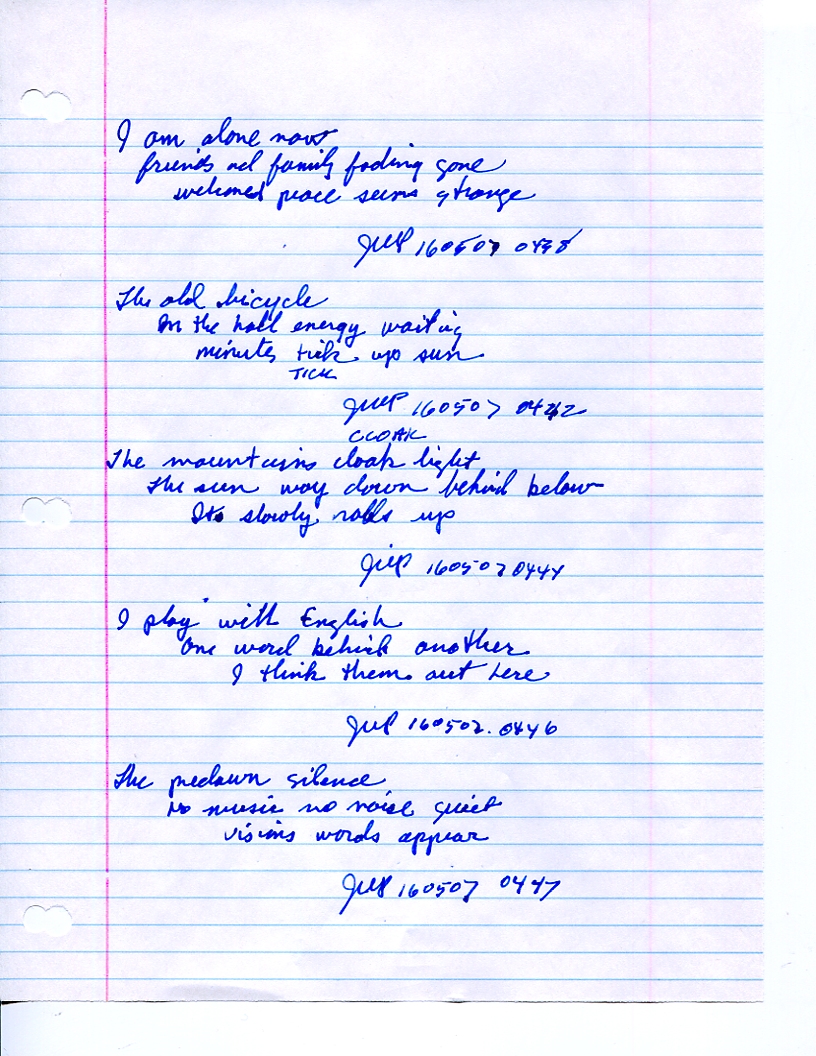 I am alone now
friends and family fading gone
welcomed peace seems strange
160507 0438
The old bicycle
In the hall energy waiting
minutes tick up sun
TICK
160507 0442
CLOAK
The mountains cloak light
The sun way down behind below
Its slowly rolls up
160507 0444
I play with English
One word behind another
I think them out here
160507 0446
The predawn silence
No music no noise quiet
visions words appear
160507 0447